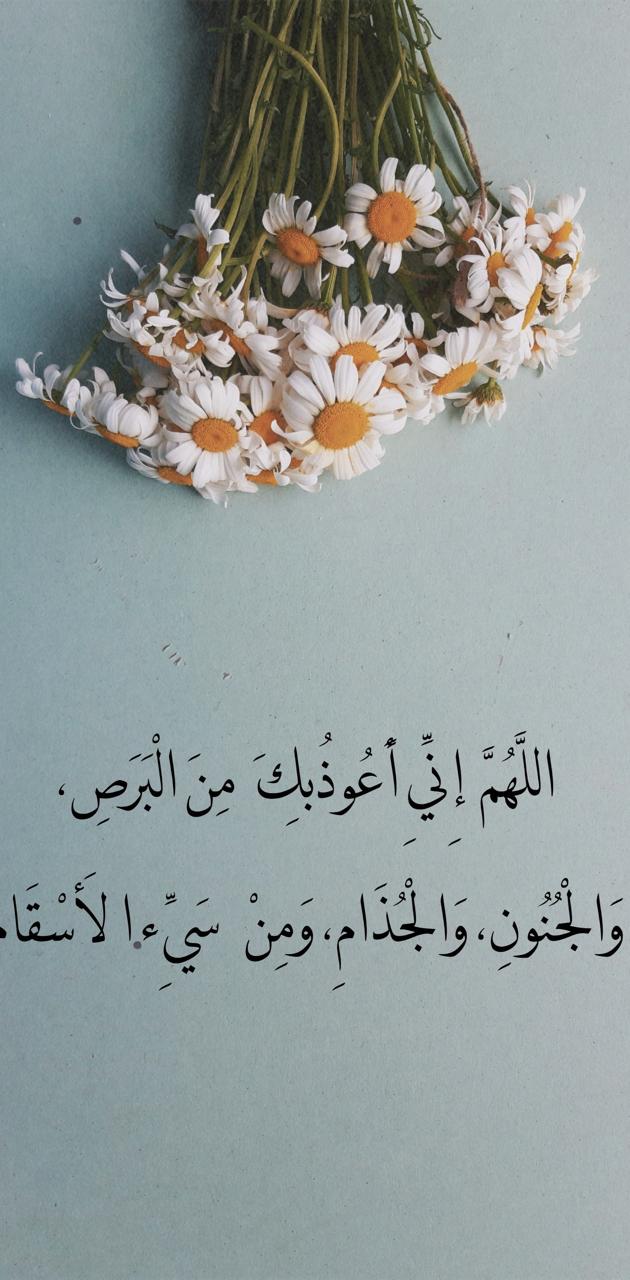 اللَّهُمَّ إِنِّي أَعُوذُبِكَ مِنَ الْبَرَصِ،
وَالْجُنُونِ، وَالْجُذَامِ، وَمِنْ سَيِّءِا لأَسْقَام